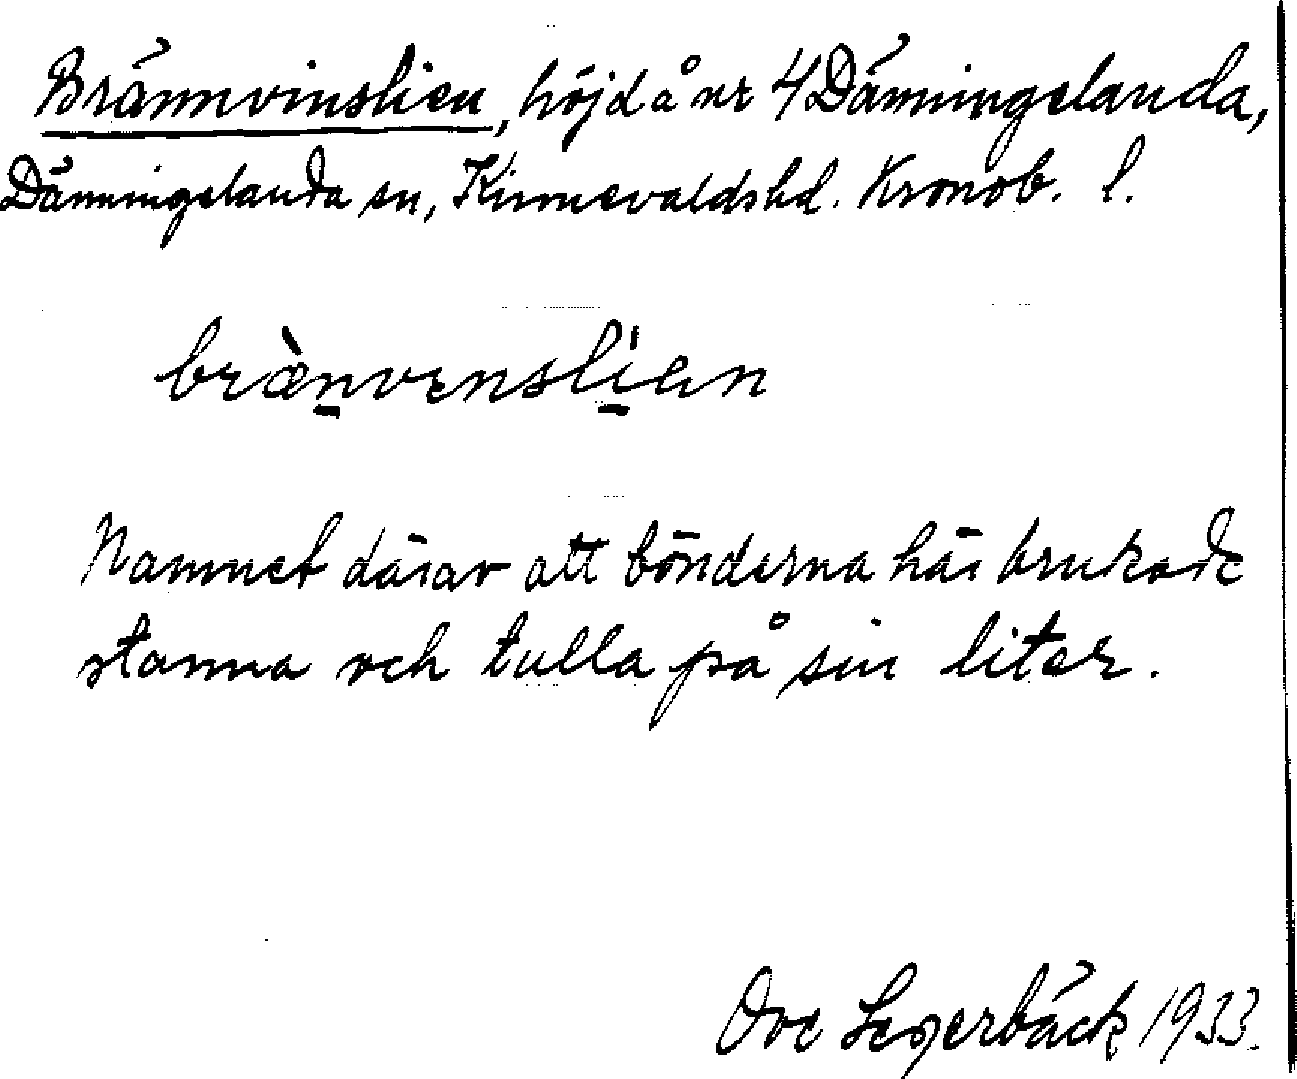 Brännvinslien, höjd å nr 4 Dänningelanda,
Dänningelanda sn, Kinnevaldshd. Kronob. l.
brænvenslien
Namnet därav att bönderna här brukade
stanna och tulla på sin liter.
Ove Segerbäck 1933.